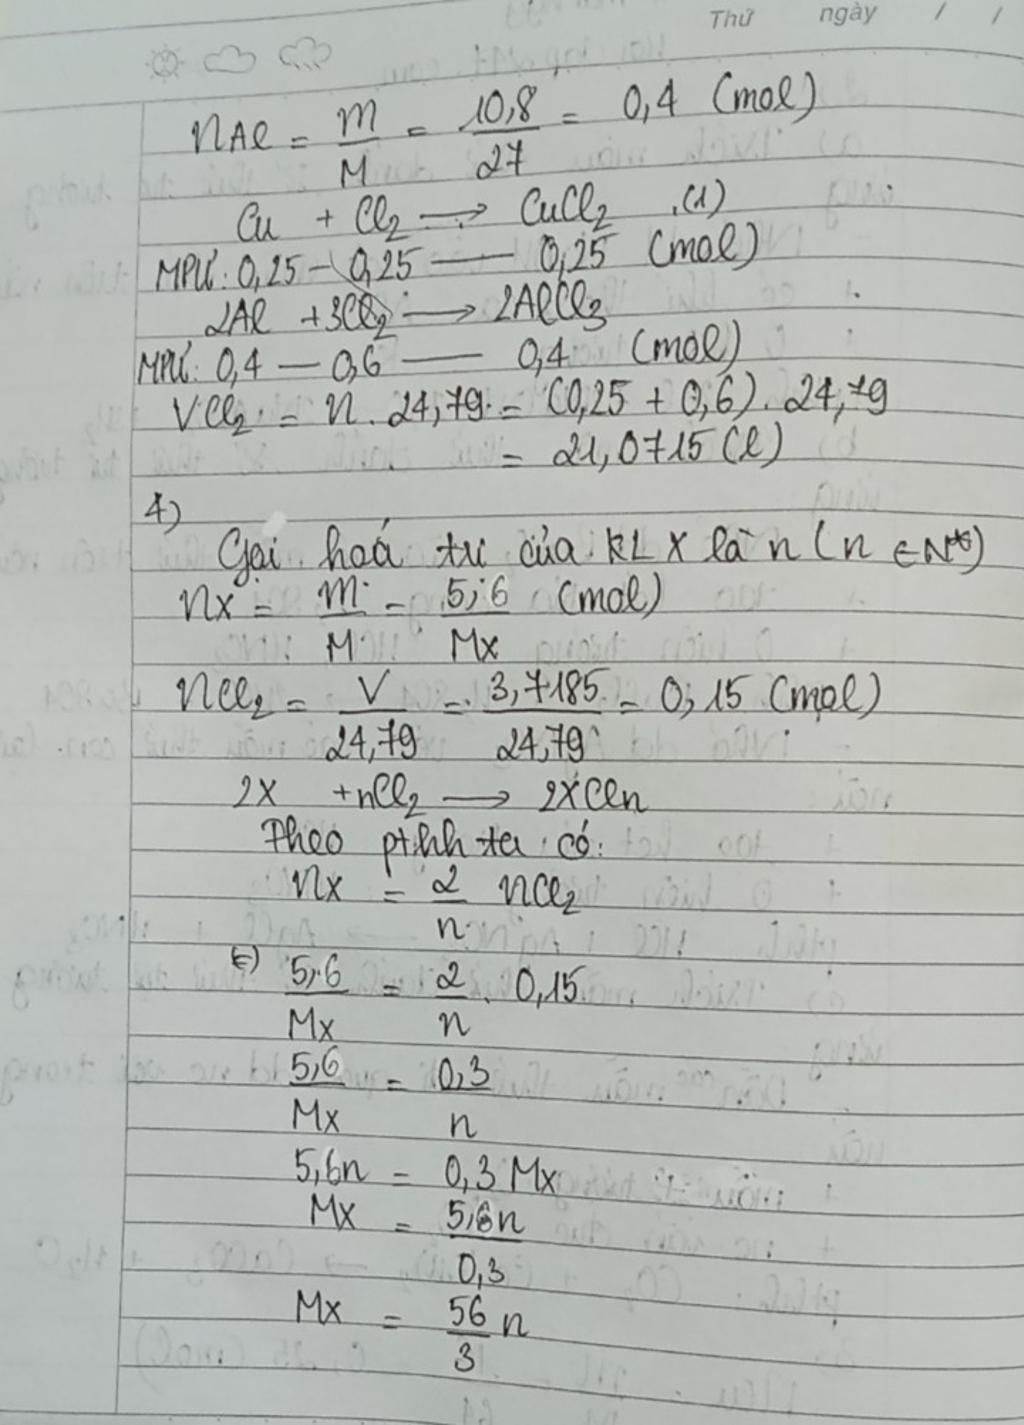 Thứ ngày / /
nAl = m/M = 10,8/27 = 0,4 (mol)
Cu + Cl₂ → CuCl₂ (1)
MPƯ: 0,25 – 0,25 — 0,25 (mol)
2Al + 3Cl₂ → 2AlCl₃
MPƯ: 0,4 — 0,6 — 0,4 (mol)
VCl₂ = n . 24,79 = (0,25 + 0,6) . 24,79
= 21,0715 (l)
4)
Gọi hoá trị của KL X là n (n ∈ N*)
nX = m/M = 5,6/Mx (mol)
nCl₂ = V/24,79 = 3,7185/24,79 = 0,15 (mol)
2X + nCl₂ → 2XCln
Theo pthh ta có:
nX = 2/n nCl₂
(=) 5,6/Mx = 2/n . 0,15
5,6/Mx = 0,3/n
5,6n = 0,3 Mx
Mx = 5,6n/0,3
Mx = 56/3 n